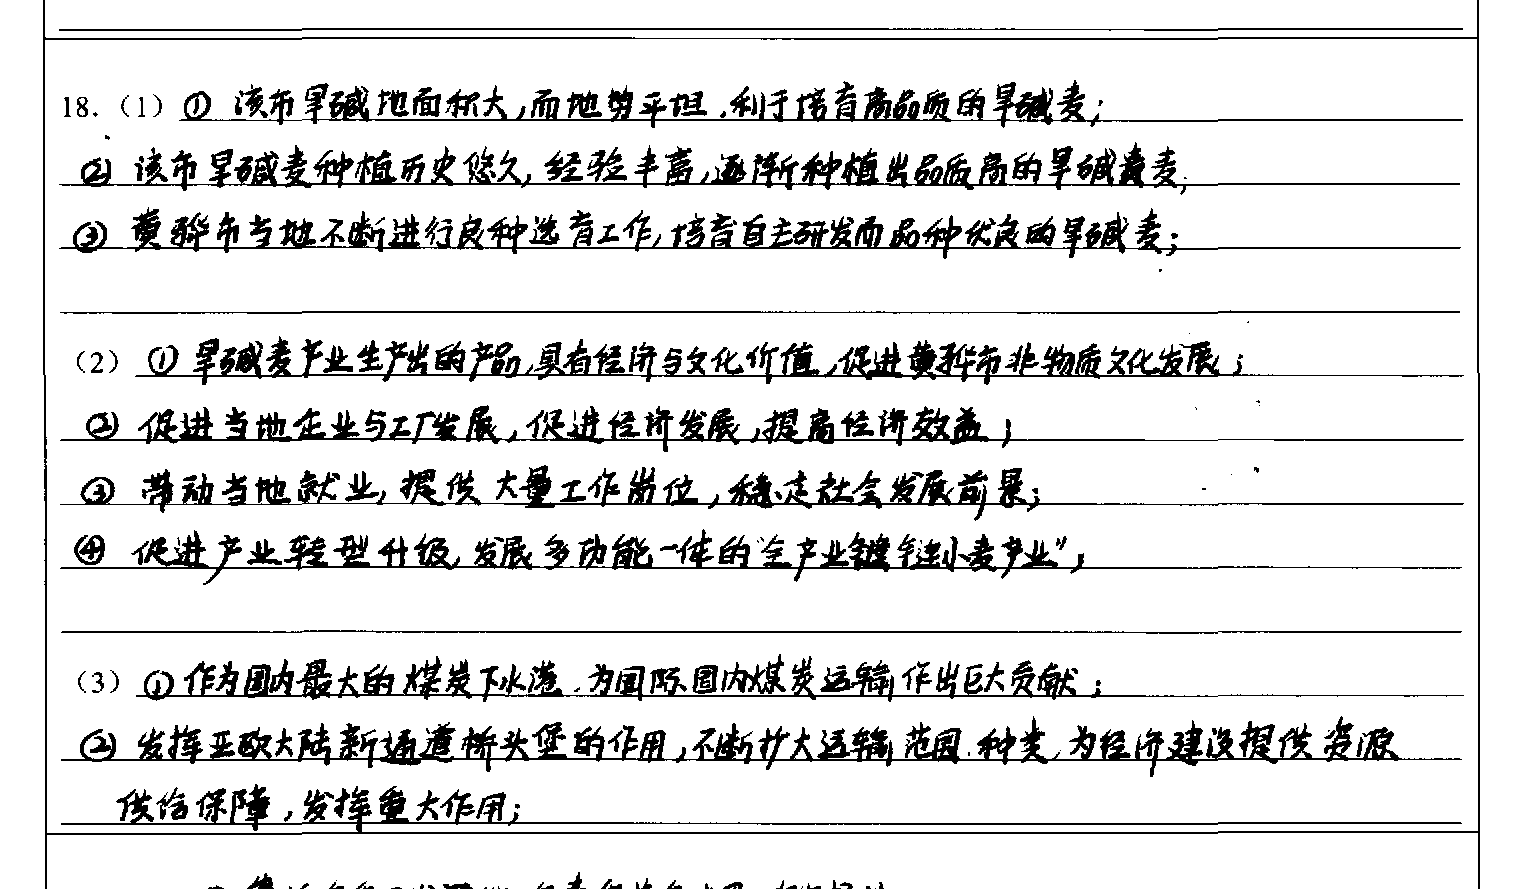 18.（1）① 该市旱碱地面积大，而地势平坦，利于培育高品质的旱碱麦；
② 该市旱碱麦种植历史悠久，经验丰富，逐渐种植出品质高的旱碱麦；
③ 黄骅市当地不断进行良种选育工作，培育自主研发而品种优良的旱碱麦；
（2）① 旱碱麦产业生产出的产品，具有经济与文化价值，促进黄骅市非物质文化发展；
② 促进当地企业与工厂发展，促进经济发展，提高经济效益；
③ 带动当地就业，提供大量工作岗位，稳定社会发展前景；
④ 促进产业转型升级，发展多功能一体的“全产业链小麦产业”；
（3）① 作为国内最大的煤炭下水港，为国际国内煤炭运输作出巨大贡献；
② 发挥亚欧大陆新通道桥头堡的作用，不断扩大运输范围、种类，为经济建设提供资源
供给保障，发挥重大作用；